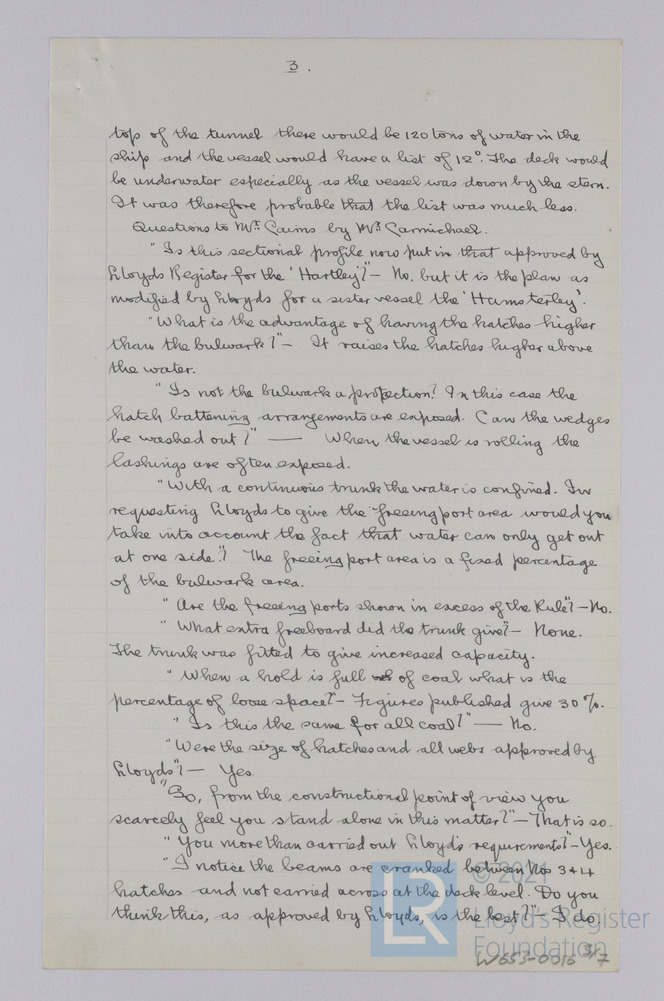 3.
top of the tunnel there would be 120 tons of water in the
ship and the vessel would have a list of 12°. The deck would
be underwater especially as the vessel was down by the stern.
It was therefore probable that the list was much less.
Questions to Mr. Cairns by Mr. Carmichael.
"Is this sectional profile now put in that approved by
Lloyds Register for the 'Hartley'?" – No, but it is the plan as
modified by Lloyds for a sister vessel the 'Hamsterley'.
"What is the advantage of having the hatches higher
than the bulwark?" – It raises the hatches higher above
the water.
"Is not the bulwark a protection? In this case the
hatch battening arrangements are exposed. Can the wedges
be washed out?" — When the vessel is rolling the
lashings are often exposed.
"With a continuous trunk the water is confined. In
requesting Lloyds to give the freeing port area would you
take into account the fact that water can only get out
at one side."? The freeing port area is a fixed percentage
of the bulwark area.
"Are the freeing ports shown in excess of the Rule"? – No.
"What extra freeboard did the trunk give"? – None.
The trunk was fitted to give increased capacity.
"When a hold is full of coal what is the
percentage of loose space?" – Figures published give 30%.
"Is this the same for all coal?" — No.
"Were the size of hatches and all webs approved by
Lloyds"? — Yes.
"So, from the constructional point of view you
scarcely feel you stand alone in this matter?" – That is so.
"You more than carried out Lloyd's requirements? – Yes.
"I notice the beams are cranked between Nos 3 + 4
hatches and not carried across at the deck level. Do you
think this, as approved by Lloyds, is the best?" – I do.
LR
© 2021
Lloyd's Register
Foundation
W653-0016 3/7